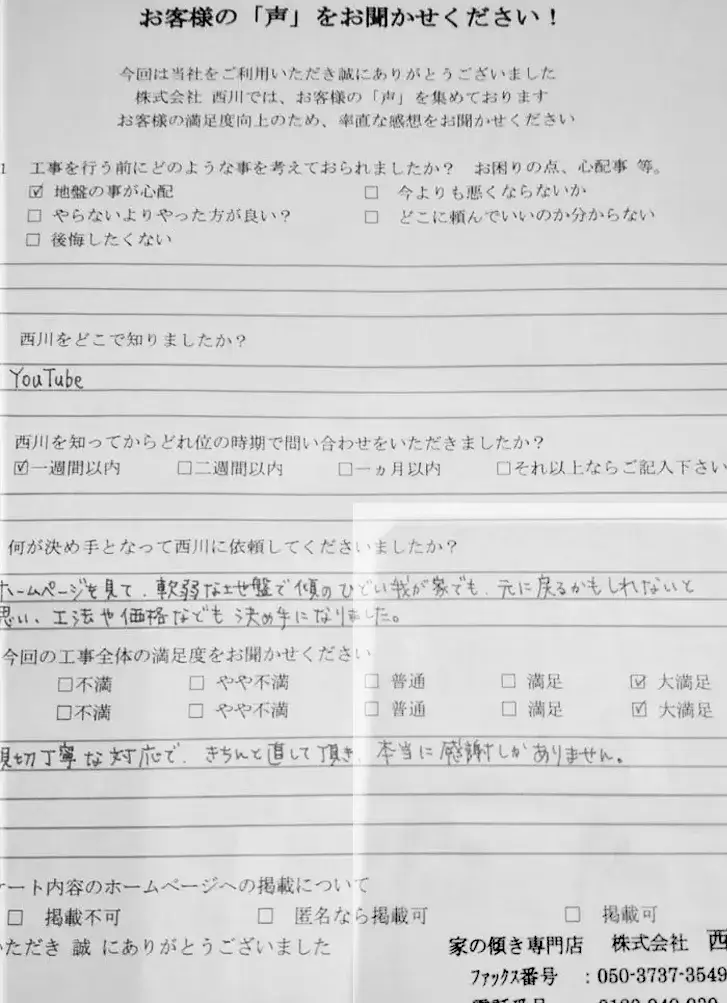 お客様の「声」をお聞かせください！
今回は当社をご利用いただき誠にありがとうございました
株式会社 西川では、お客様の「声」を集めております
お客様の満足度向上のため、率直な感想をお聞かせください
1 工事を行う前にどのような事を考えておられましたか？ お困りの点、心配事 等。
☑ 地盤の事が心配 □ 今よりも悪くならないか
□ やらないよりやった方が良い？ □ どこに頼んでいいのか分からない
□ 後悔したくない
西川をどこで知りましたか？
YouTube
西川を知ってからどれ位の時期で問い合わせをいただきましたか？
☑一週間以内 □二週間以内 □一ヵ月以内 □それ以上ならご記入下さい
何が決め手となって西川に依頼してくださいましたか？
ホームページを見て、軟弱な地盤で傾のひどい我が家でも、元に戻るかもしれないと
思い、工法や価格なども決め手になりました。
今回の工事全体の満足度をお聞かせください
□不満 □ やや不満 □ 普通 □ 満足 ☑ 大満足
□不満 □ やや不満 □ 普通 □ 満足 ☑ 大満足
親切丁寧な対応で、きちんと直して頂き、本当に感謝しかありません。
ケート内容のホームページへの掲載について
□ 掲載不可 □ 匿名なら掲載可 □ 掲載可
いただき 誠 にありがとうございました
家の傾き専門店 株式会社 西
ファックス番号 ：050-3737-3549